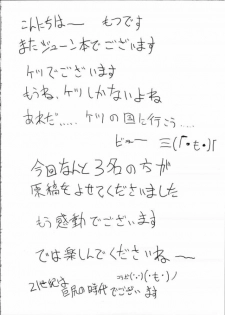 こんにちは〜 もつです
またジューン本でございます
ケツでございます
もうね、ケツしかないよね
あれだ……ケツの国に行こう……
ビュー 三(「・も・)「
今回なんと3名の方が
原稿をよせてくださいました
もう感動でございます
では楽しんでくださいね〜
21世紀は
巨尻の時代でございます
(・も・)ノ